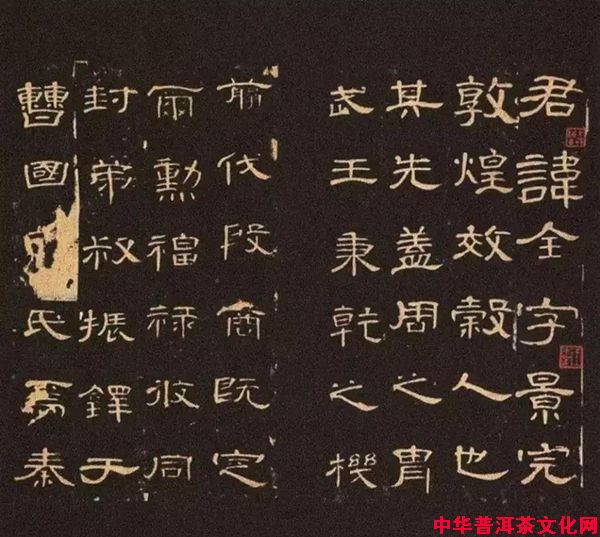 君諱全字景完
敦煌效穀人也
其先蓋周之胄
武王秉乾之機
翦伐殷商既定
爾勳福祿攸同
封弟叔振鐸于
曹國氏焉秦
中华普洱茶文化网